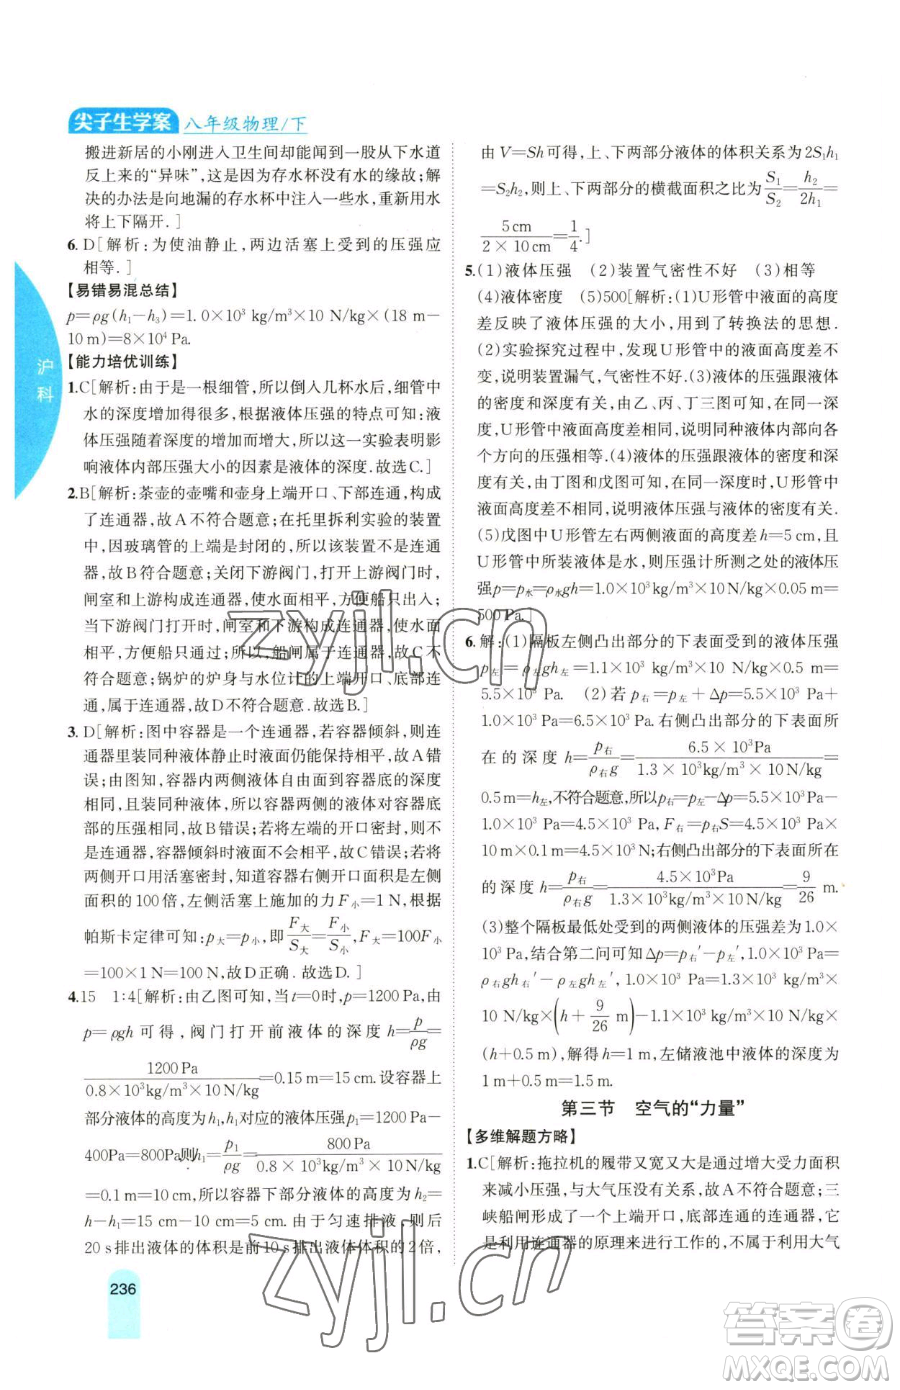 尖子生学案 八年级物理/下
搬进新居的小刚进入卫生间却能闻到一股从下水道
反上来的“异味”,这是因为存水杯没有水的缘故;解
决的办法是向地漏的存水杯中注入一些水,重新用水
将上下隔开.]
6. D[解析:为使油静止,两边活塞上受到的压强应
相等.]
【易错易混总结】
p=ρg(h₁-h₃)=1.0×10³ kg/m³×10 N/kg×(18 m-
10 m)=8×10⁴ Pa.
【能力培优训练】
1. C[解析:由于是一根细管,所以倒入几杯水后,细管中
水的深度增加得很多,根据液体压强的特点可知:液
体压强随着深度的增加而增大,这一实验表明影
响液体内部压强大小的因素是液体的深度.故选C.]
2. B[解析:茶壶的壶嘴和壶身上端开口、下部连通,构成
了连通器,故A不符合题意;在托里拆利实验的装置
中,因玻璃管的上端是封闭的,所以该装置不是连通
器,故B符合题意;关闭下游阀门,打开上游阀门时,
闸室和上游构成连通器,使水面相平,方便船只出入;
当下游阀门打开时,闸室和下游构成连通器,使水面
相平,方便船只出入,所以,船闸是连通器,故C不
符合题意;锅炉的炉身与水位计的上端开口、底部
连通,属于连通器,故D不符合题意.故选B.]
3. D[解析:图中容器是一个连通器,若容器倾斜,则连
通器里装同种液体静止时液面仍能保持相平,故A错
误;由图知,容器内两侧液体距离液面的深度相同,
且装同种液体,所以容器两侧的液体对容器底
部的压强相等,故B错误;若将左端的开口密封,则
容器倾斜时液面不会相平,故C错误;若将容器两
侧开口用活塞密封,知道容器右侧开口面积是左侧
面积的100倍,左侧活塞上施加的力F小=1 N,根据
帕斯卡定律可知:p大=p小,即F大/S大=F小/S小,F大=100F小
=100×1 N=100 N,故D正确.故选D.]
4. 15 1:4[解析:由乙图可知,当t=0时,p=1200 Pa,由
p=ρgh可得,阀门打开前液体的深度h=p/ρg=
1200 Pa/(0.8×10³ kg/m³×10 N/kg)=0.15 m=15 cm.设容器上
部分液体的高度为h₁,h₁对应的液体压强p₁=1200 Pa-
400Pa=800Pa,则h₁=p₁/ρg=800 Pa/(0.8×10³ kg/m³×10 N/kg)
=0.1 m=10 cm,所以容器下部分液体的高度为h₂=
h-h₁=15 cm-10 cm=5 cm.由于匀速排液,则后
20 s排出液体的体积是前10 s排出液体体积的2倍,
由V=Sh可得,上、下两部分液体的体积关系为2S₁h₁
=S₂h₂,则上、下两部分的横截面积之比为S₁/S₂=h₂/2h₁=
5 cm/(2×10 cm)=1/4.]
5. (1)液体压强 (2)装置气密性不好 (3)相等
(4)液体密度 (5)500[解析:(1)U形管中液面的高度
差反映了液体压强的大小,用到了转换法的思想.
(2)实验探究过程中,发现U形管中的液面高度差
不明显,说明装置漏气,气密性不好.(3)液体的压强跟液体
的密度和深度有关,由乙、丙、丁三图可知,在同一深
度,U形管中液面高度差相同,说明同种液体内部向各
个方向的压强相等.(4)液体的压强跟液体的密度和深
度有关,由丁图和戊图可知,在同一深度,液体密度不
同,液体压强不同,说明液体压强与液体的密度有关.
(5)戊图中U形管左右两侧液面的高度差h=5 cm,U
形管中所装液体是水,则压强计所测之处的液体压
强p=p水=ρ水gh=1.0×10³ kg/m³×10 N/kg×0.05 m=
500 Pa.]
6. 解:(1)隔板左侧凸出部分的下表面受到的液体压强
p左=ρ左gh左=1.1×10³ kg/m³×10 N/kg×0.5 m=
5.5×10³ Pa. (2)若p右=p左+Δp=5.5×10³ Pa+
1.0×10³ Pa=6.5×10³ Pa.右侧凸出部分的下表面所
在的深度h=p右/ρ右g=6.5×10³Pa/(1.3×10³kg/m³×10N/kg)=
0.5m=h左,不符合题意,所以p右=p左-Δp=5.5×10³Pa-
1.0×10³ Pa=4.5×10³ Pa,F右=p右S=4.5×10³ Pa×
10 m×0.1 m=4.5×10³ N.右侧凸出部分的下表面所在
的深度h=p右/ρ右g=4.5×10³Pa/(1.3×10³kg/m³×10N/kg)=9/26 m.
(3)整个隔板最低处受到的两部分的液体压强差为1.0×
10³ Pa,结合第二问可知Δp=p右′-p左′=1.0×10³ Pa,
ρ右gh右′-ρ左gh左′=1.0×10³ Pa,1.3×10³ kg/m³×
10 N/kg×(h+9/26 m)-1.1×10³ kg/m³×10 N/kg×
(h+0.5 m),解得h=1 m,左储液池中液体的深度为
1 m+0.5 m=1.5 m.
第三节 空气的“力量”
【多维解题方略】
1. C[解析:拖拉机的履带又宽又大是通过增大受力面积
来减小压强,与大气压没有关系,故A不符合题意;三
峡船闸形成了一个上端开口,底部连通的连通器,它
它是利用连通器的原理来进行工作的,不属于利用大气
沪科
236
zyjl.cn
zyjl.cn
答案圈
MXQE.COM